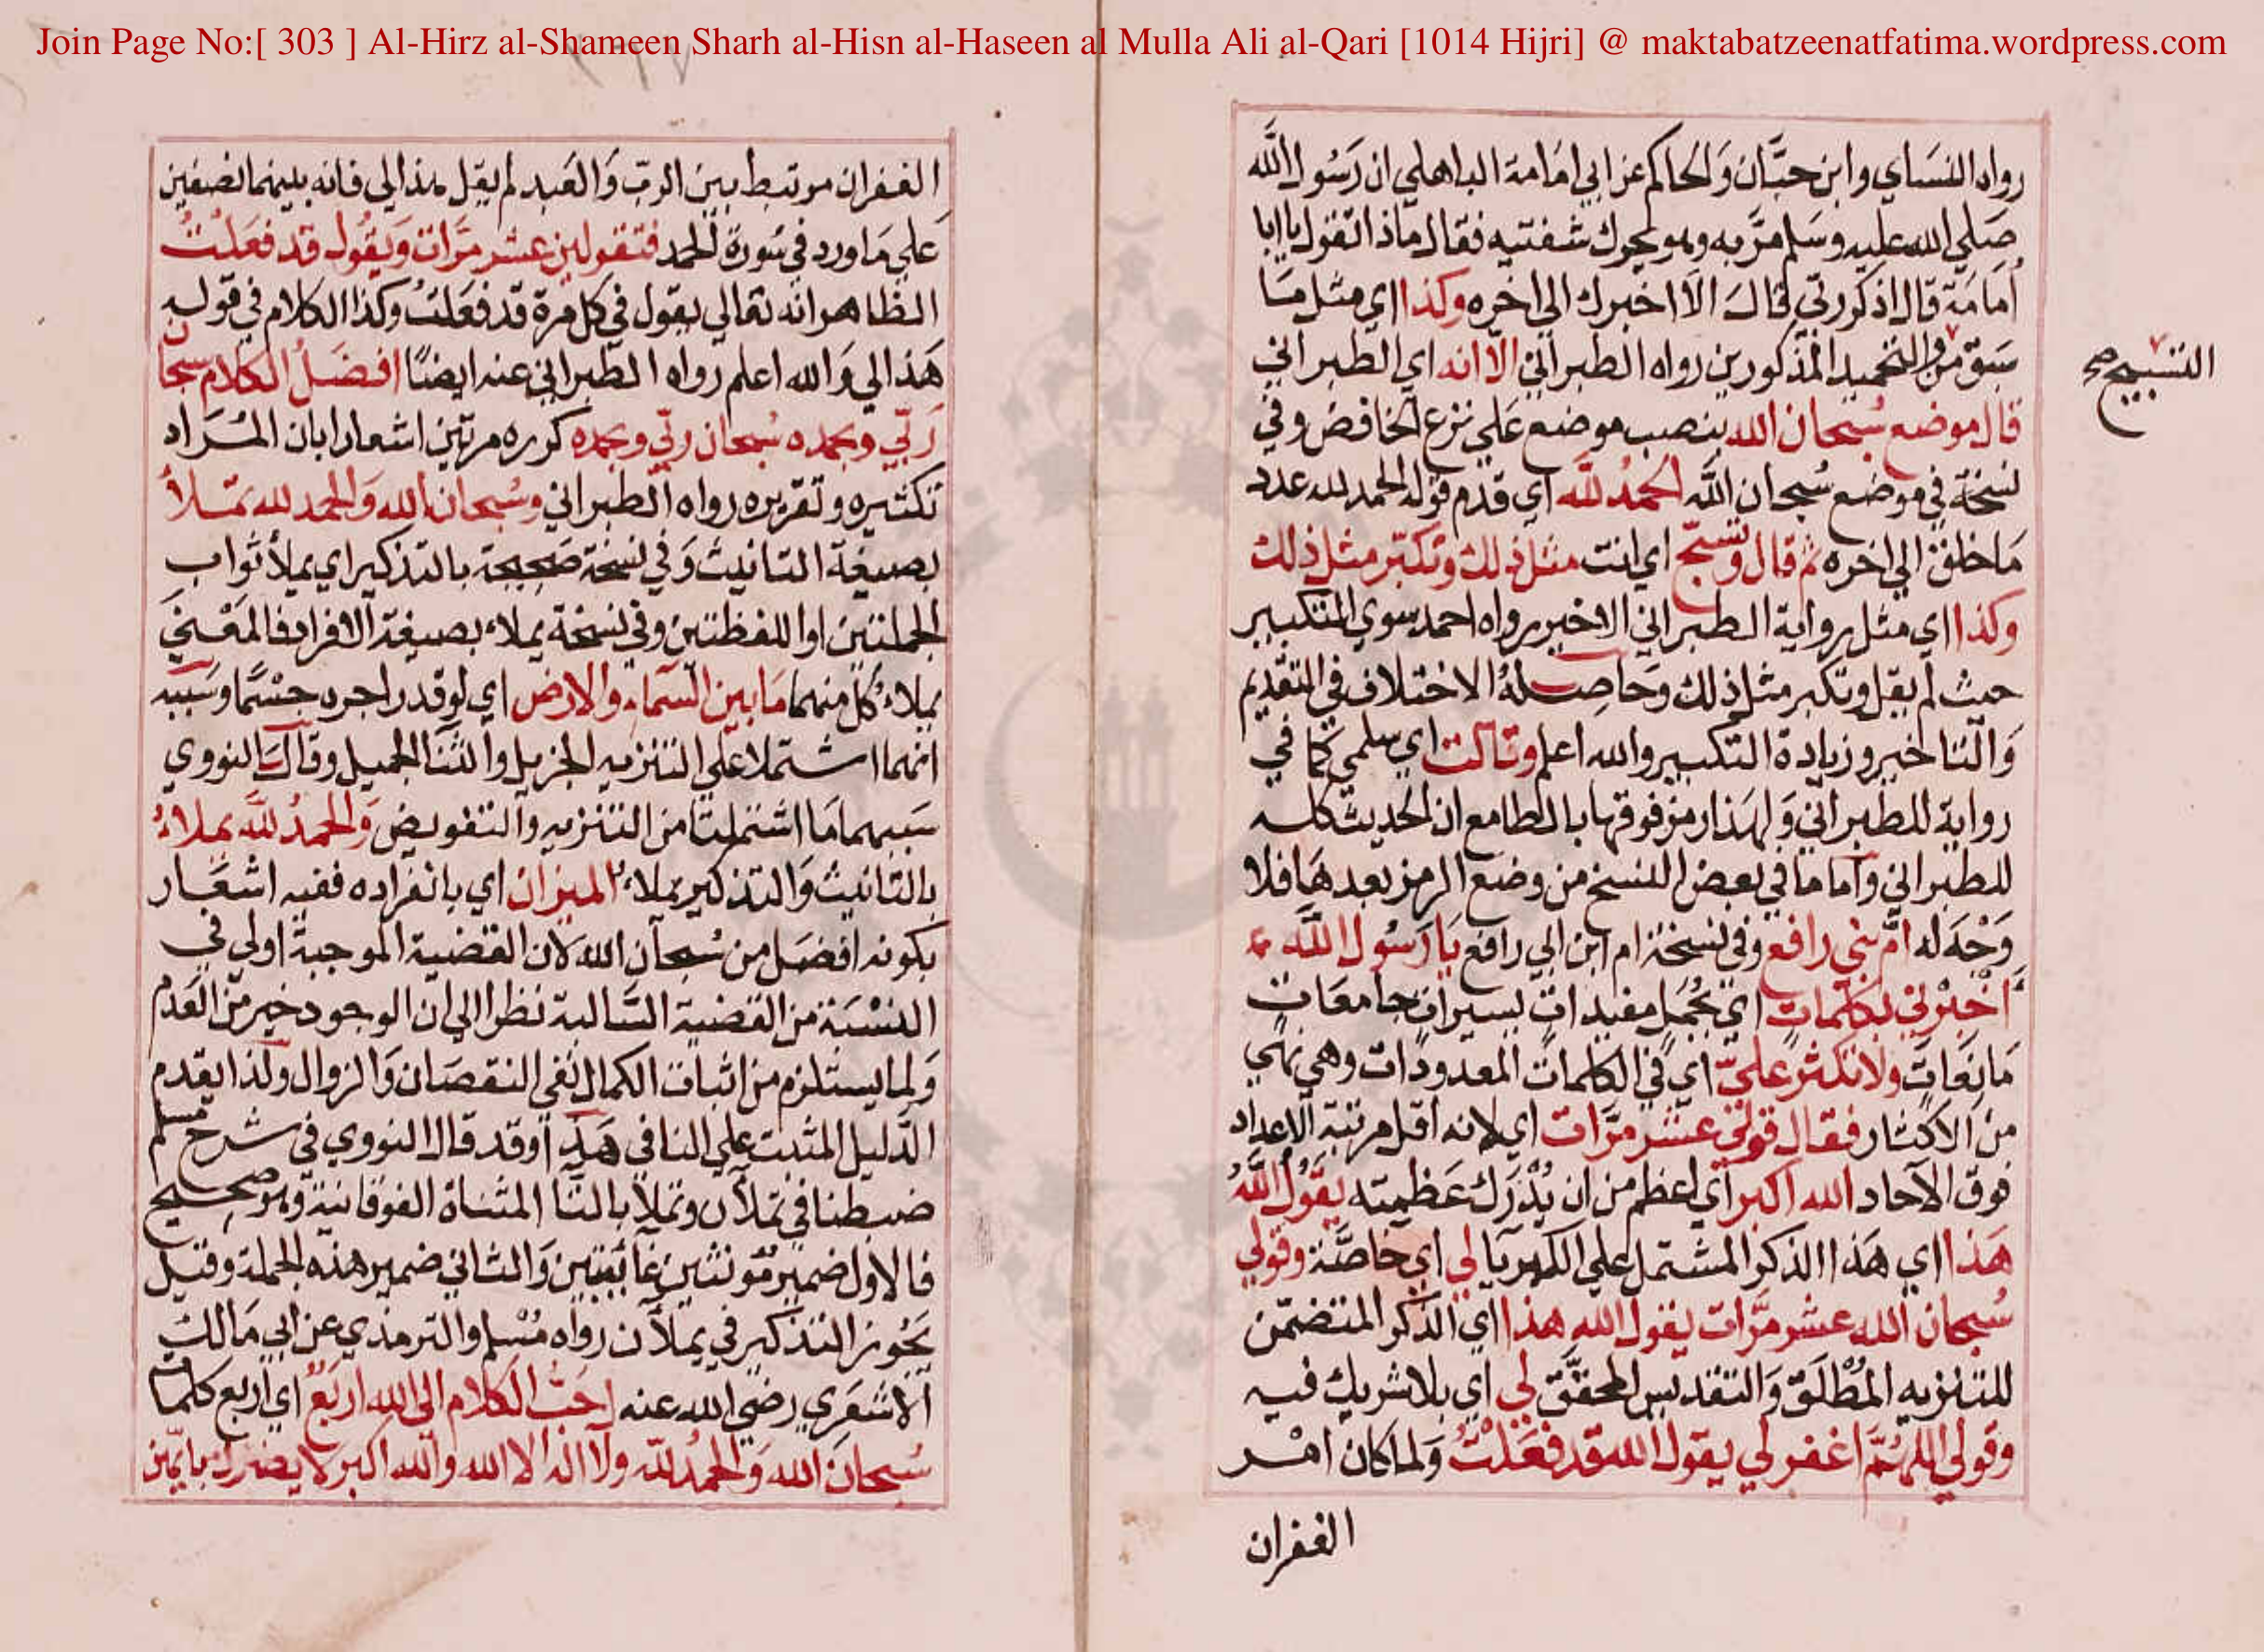 Join Page No:[ 303 ] Al-Hirz al-Shameen Sharh al-Hisn al-Haseen al Mulla Ali al-Qari [1014 Hijri] @ maktabatzeenatfatima.wordpress.com
رواه النساي وابن حبَّان وَالحاكم عن ابي امَامة الباهلي ان رَسُول الله
صَلي الله عليه وسَلم مرَّ به وهو يحرك شفتيه فقال ماذا تقول يا ابا
أمَامَة قال اذكر ربّي قال الَا اخبرك الي اخره وكذا اي مثل مَا
سَبق من والتحميد المذكورين رواه الطبراني الّا انه اي الطبراني
التسبيح صح
قال موضع سُبحان الله بنصب موضع عَلي نزع الخافض وفي
نسخة في موضع سُبحان الله الحمدُ لله اي قدم قوله الحمد لله عدد
مَا خلق الي اخره ثم قال وتسبّح اي انت مثل ذلك وتكبّر مثل ذلك
وكذا اي مثل رواية الطبراني الاخير رواه احمد سوي التكبير
حيث لم يقل وتكبر مثل ذلك وحَاصِلهُ الاختلاف في التقديم
وَالتاخير وزيادة التكبير والله اعلم وقالت اي سلمي كما في
رواية للطبراني وَلهذا رمز فوقها بالطا مع ان الحديث كله
للطبراني وَاما مَا في بعض النسخ من وضع الرمز بعدهَا فلا
وَجْهَ له امّ بني رافع وفي نسخة ام ابن ابي رافع يَا رَسُول الله
أَخْبرْني بكلمَات اي بجُمَل مفيدات يسيرات جامعَات
مَانعَات ولا تكثر عليّ اي في الكلمات المعدودَات وهي نهي
من الاكثار فقال قولي عشر مرَّات اي لانه اقل مرتبة الاعداد
فوق الآحاد الله اكبر اي اعظم من ان يُدْرَك عَظمته يقولُ اللهُ
هَذا اي هَذا الذكر المشتمل علي الكبريَا لي اي خاصَّة وقولي
سُبحان الله عشر مرَّات يقول الله هذا اي الذكر المتضمّن
للتنزيه المُطْلَق وَالتقديس المحقَّق لي اي بلا شريك فيه
وقولي اللهُمَّ اغفر لي يقول الله قد فعَلْتُ وَلما كان امْر
الغفران
الغفران مرتبط بين الربّ وَالعَبد لم يقل هذا لي فانه بينهما نصفين
عَلي مَا ورد في سُورة الحمد فتقولين عشر مرَّات وَيقُول قد فعَلتُ
الظاهر انه تعالي يقول في كل مرة قد فعَلتُ وكذا الكلام في قوله
هَذا لي وَالله اعلم رواه الطبراني عنه ايضًا افضَلُ الكلام سبحان
رَبّي وبحمده سُبحان ربّي وبحمده كرره مرتين اشعارا بان المُرَاد
تكثيره وتقريره رواه الطبراني وسُبحان الله وَالحمد لله تملأ
بصيغة التانيث وَفي نسخة صَحيحة بالتذكير اي يملأ ثواب
الجملتين او اللفظتين وفي نسخة يملاء بصيغة الافراد فالمَعْني
يملاءُ كلٌ منهما مَا بين السّماء والارض اي لو قدر اجره جسْمًا وسَببه
انهما اشتملا علي التنزيه الجزيل والثنا الجميل وقالَ النووي
سَببهما مَا اشتملتا من التنزيه والتفويض وَالحمدُ لله يملاءُ
بالتانيث وَالتذكير يملاءُ الميزان اي بانفراده ففيه اشعَار
بكونه افضَل من سُبحان الله لان القضية الموجبة اولي في
النسْبَة من القضية السَّالبة نظرا الي ان الوجود خير من العَدم
وَلما يستلزم من اثبات الكمال نفي النقصَان وَالزوال ولذا يقدم
الدّليل المثبت علي النافي هَذا وقد قال النووي في شرح مسلم
ضبطنا في تملآن وتملأ بالتا المثناة الفوقانية وهو صحيح
فالاول ضمير مُؤنثين غائبين وَالثاني ضمير هذه الجملة وقيل
يَجُوز التذكير في يملآن رواه مُسْلم والترمذي عن ابي مَالك
الاشعَري رضي الله عنه احَبُّ الكلام الي الله اربَعٌ اي اربع كلمات
سُبحانَ الله وَالحمدُ لله ولا اله الا الله والله اكبر لا يضرك بايّهن